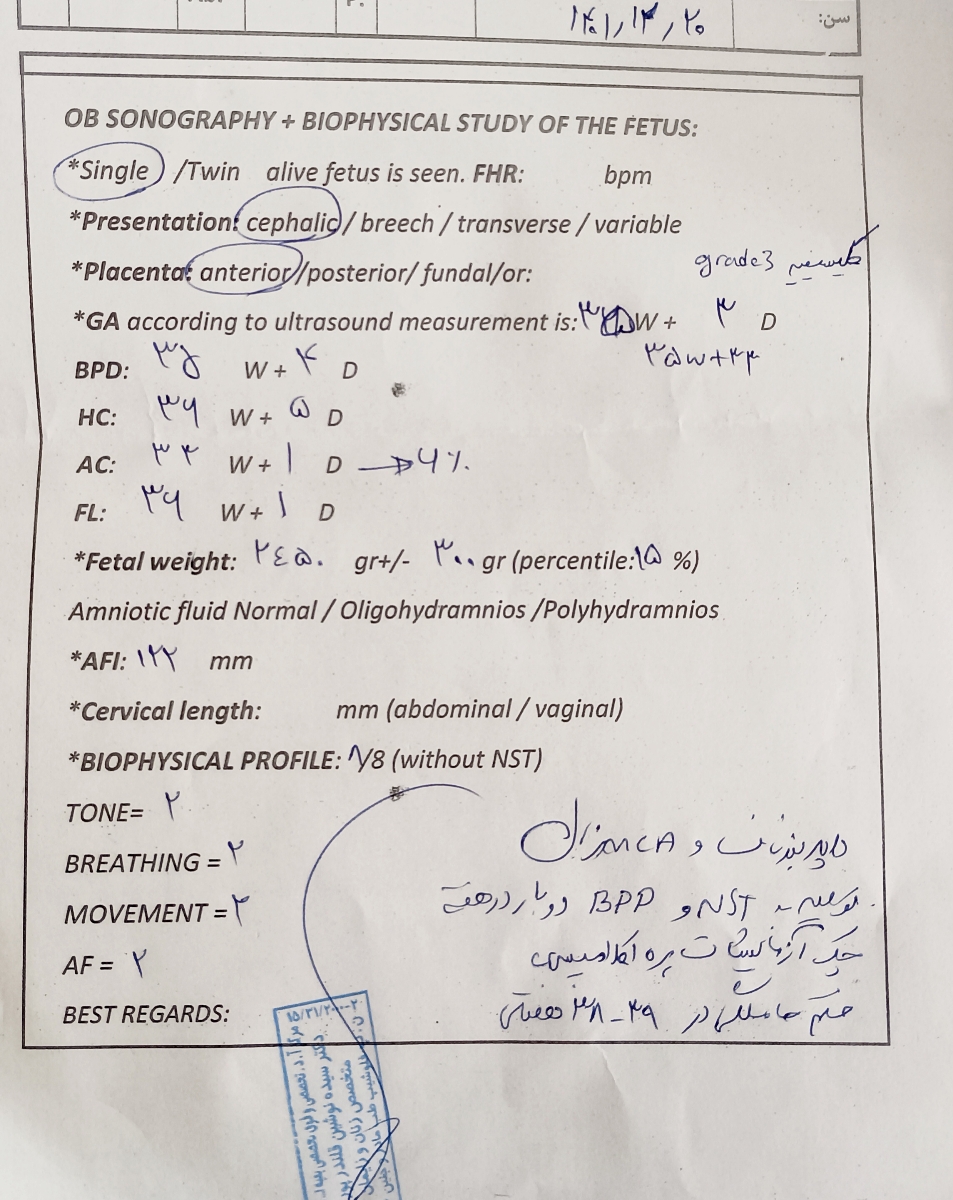 سن:
OB SONOGRAPHY + BIOPHYSICAL STUDY OF THE FETUS:
*Single /Twin alive fetus is seen. FHR: bpm
*Presentation: cephalic / breech / transverse / variable
grade3
*Placenta: anterior /posterior/ fundal/or:
*GA according to ultrasound measurement is: W + ۳ D
BPD: ۳۵ W + ۴ D
HC: ۳۶ W + ۵ D
AC: ۳۴ W + ۱ D → ۶٪
FL: ۳۶ W + ۱ D
*Fetal weight: ۲٤۵۰ gr+/- ۳۰۰ gr (percentile:۱۵ %)
Amniotic fluid Normal / Oligohydramnios /Polyhydramnios
*AFI: ۱۲۲ mm
*Cervical length: mm (abdominal / vaginal)
*BIOPHYSICAL PROFILE: ۸/8 (without NST)
TONE= ۲
داپلر بندناف و MCA نرمال
BREATHING = ۲
توصیه به NST و BPP دوبار در هفته
MOVEMENT = ۲
چک آزمایشات پره اکلامپسی
AF = ۲
ختم حاملگی در ۳۸-۳۹ هفتگی
BEST REGARDS: